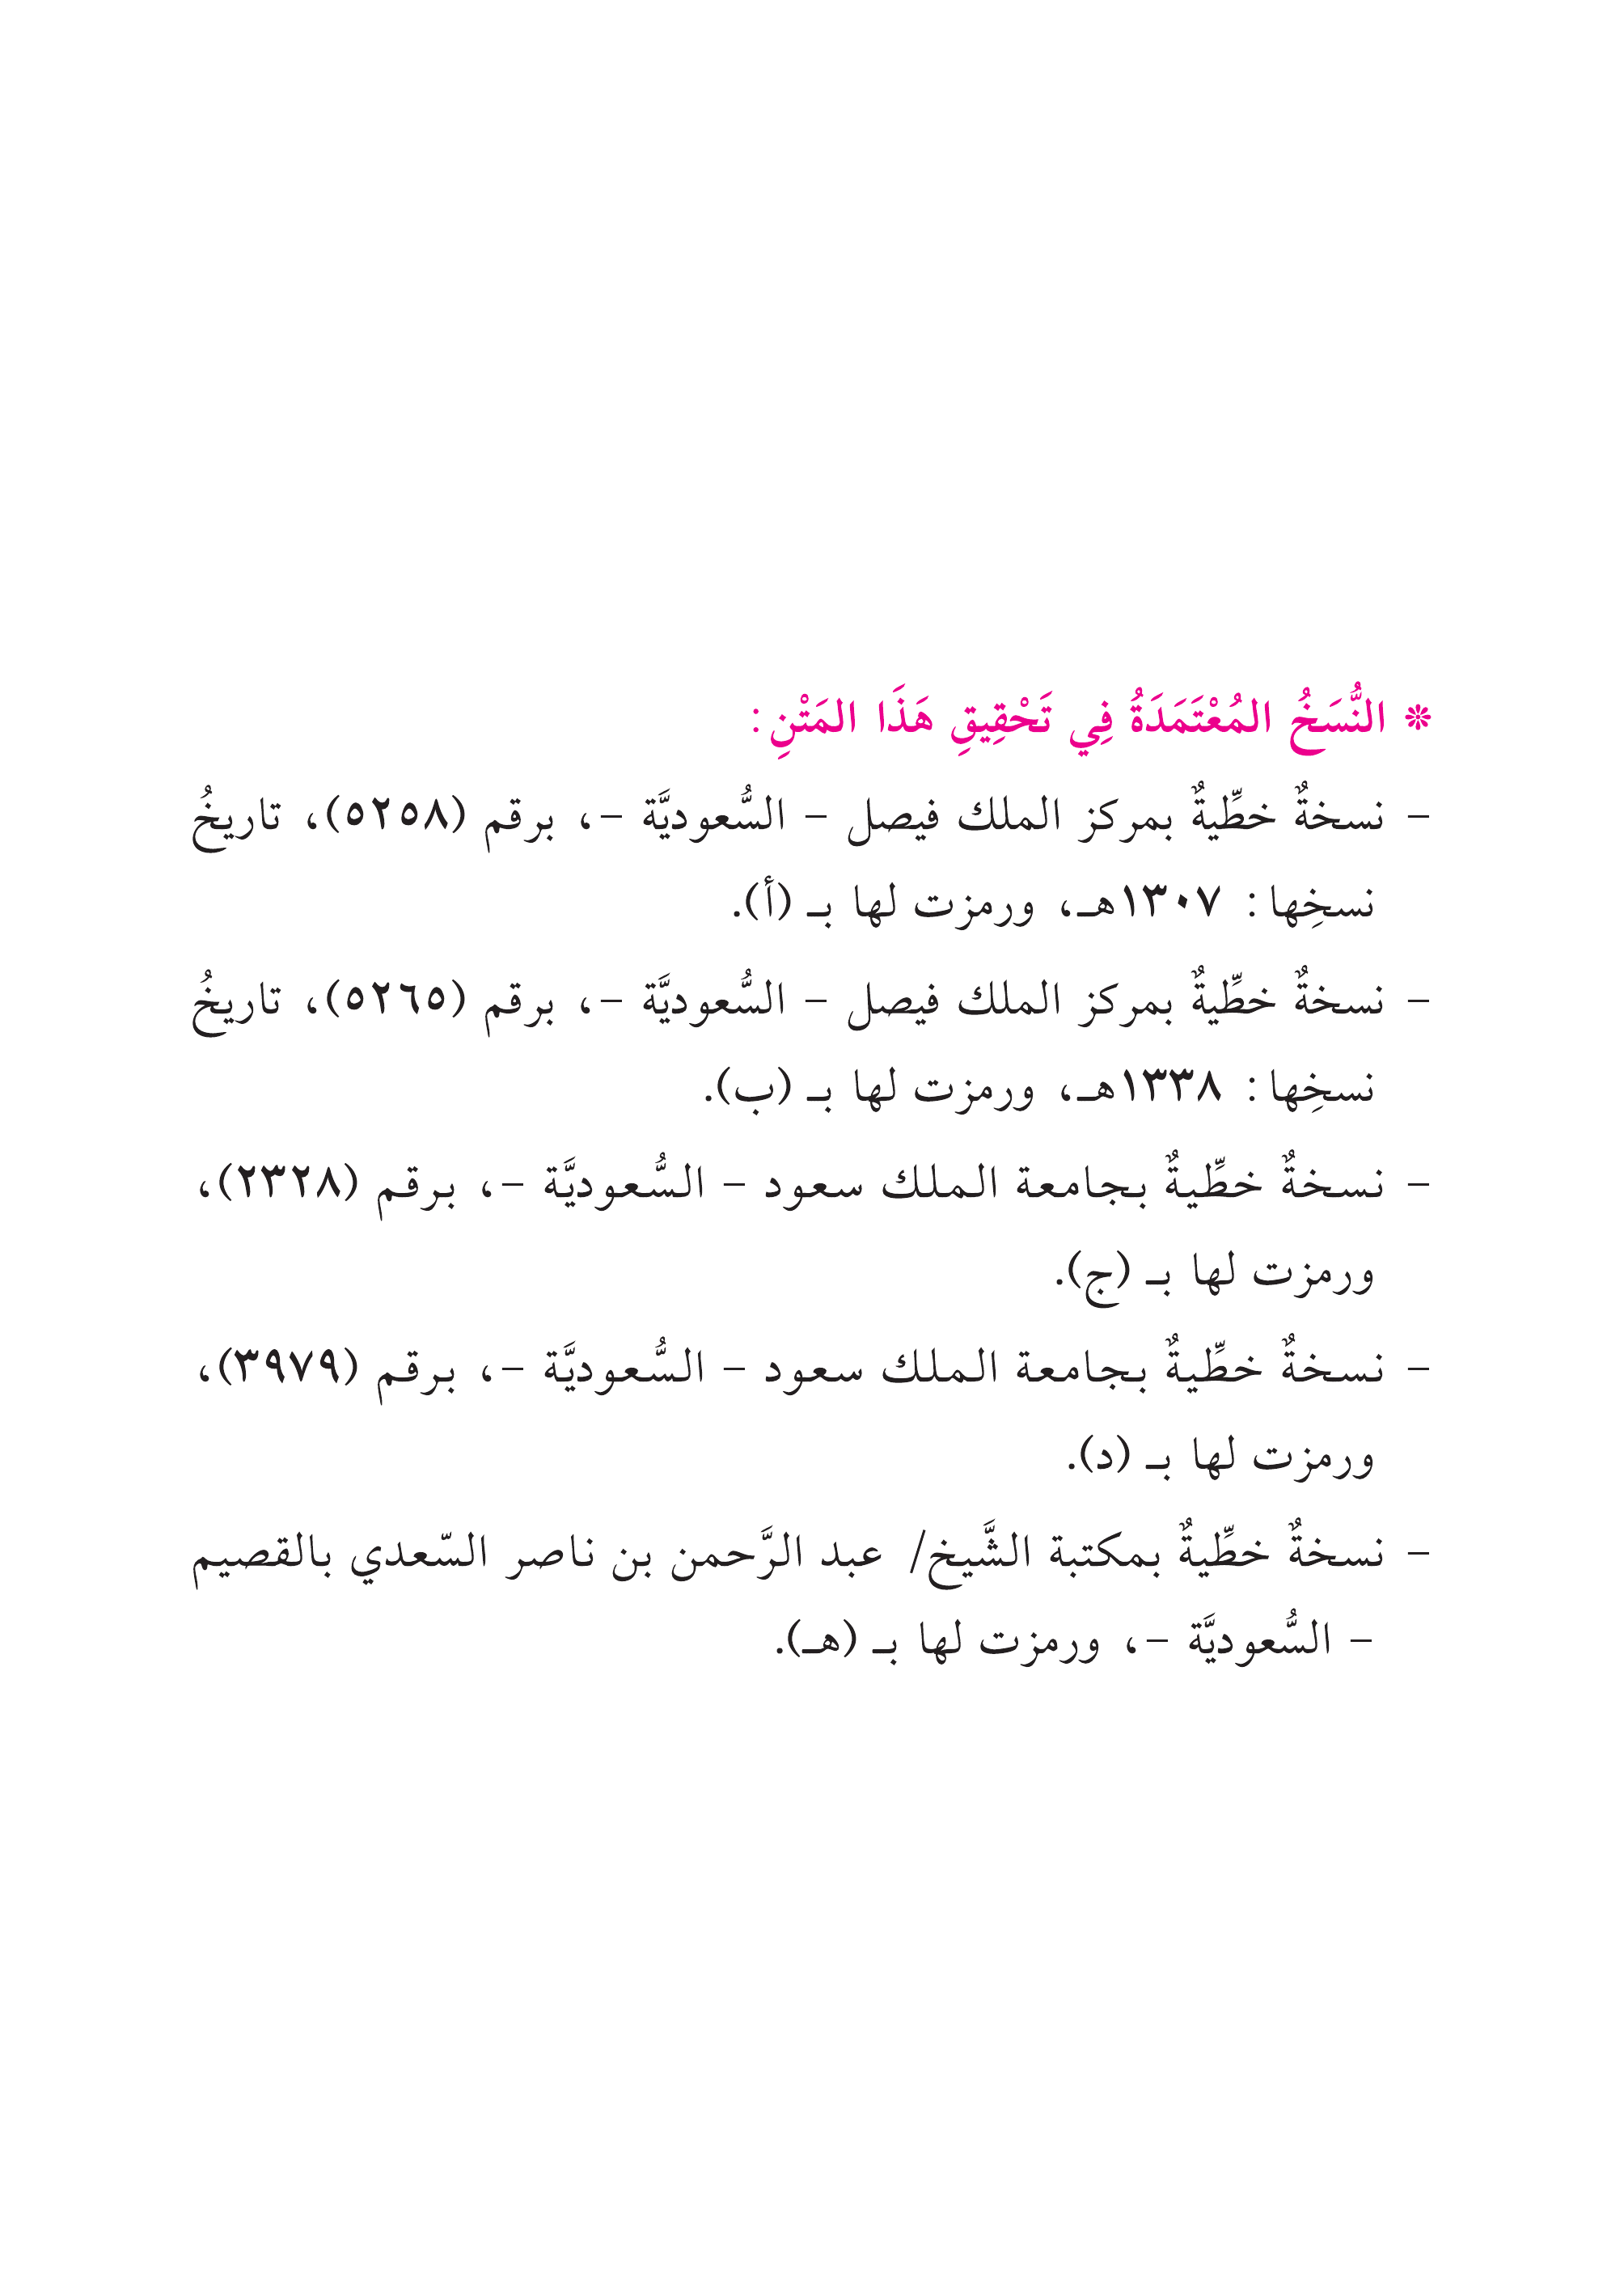 * النُّسَخُ المُعْتَمَدَةُ فِي تَحْقِيقِ هَذَا المَتْنِ:
- نسخةٌ خطِّيةٌ بمركز الملك فيصل - السُّعوديَّة -، برقم (٥٢٥٨)، تاريخُ
نسخِها: ١٣٠٧هـ، ورمزت لها بـ (أ).
- نسخةٌ خطِّيةٌ بمركز الملك فيصل - السُّعوديَّة -، برقم (٥٢٦٥)، تاريخُ
نسخِها: ١٣٣٨هـ، ورمزت لها بـ (ب).
- نسخةٌ خطِّيةٌ بجامعة الملك سعود - السُّعوديَّة -، برقم (٢٣٢٨)،
ورمزت لها بـ (ج).
- نسخةٌ خطِّيةٌ بجامعة الملك سعود - السُّعوديَّة -، برقم (٣٩٧٩)،
ورمزت لها بـ (د).
- نسخةٌ خطِّيةٌ بمكتبة الشَّيخ/ عبد الرَّحمن بن ناصر السّعدي بالقصيم
- السُّعوديَّة -، ورمزت لها بـ (هـ).